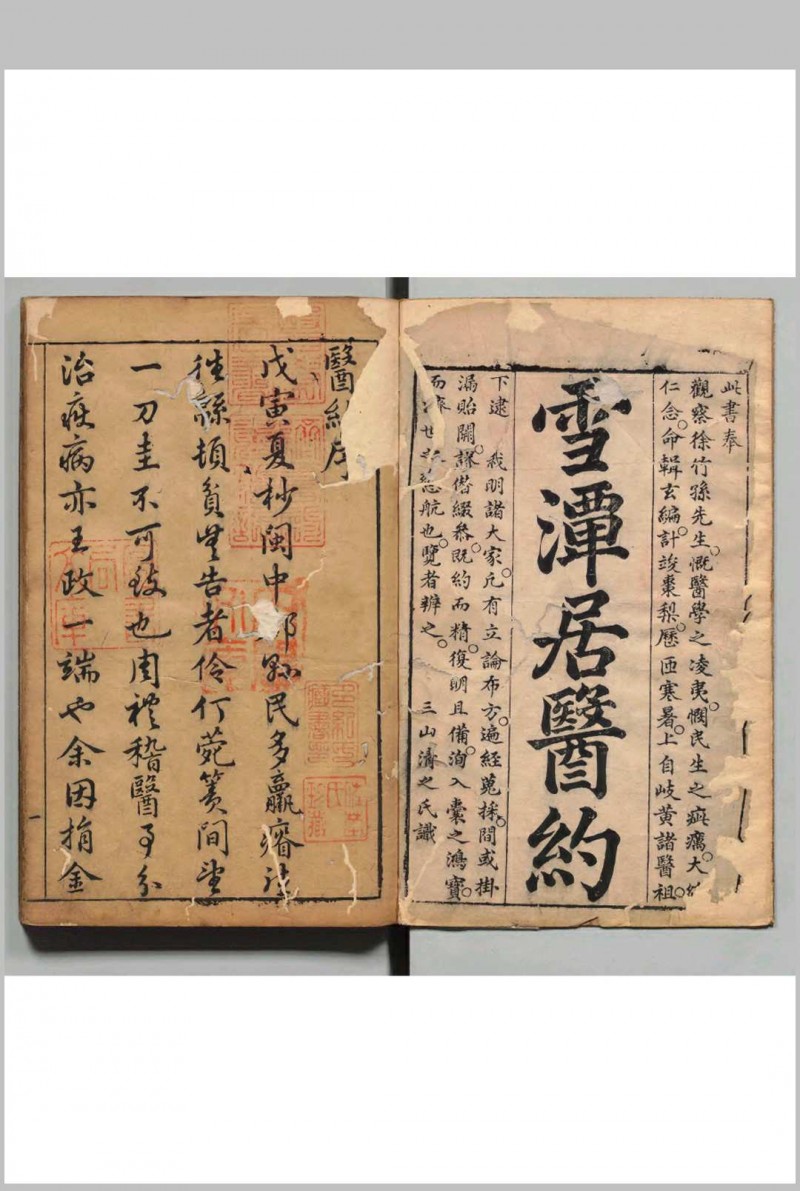 此書奉
觀察徐竹孫先生。慨醫學之凌夷。憫民生之疵癘。大
仁念。命輯玄編。計竣棗梨。歷匝寒暑。上自岐黃諸醫祖。
雪潭居醫約
下逮 我明諸大家。凡有立論布方。遍經蒐採。間或掛
漏貽闕。謬僭綴叅。既約而精。復明且備。洵入囊之鴻寶。
而 世 慈航也。覽者辨之。 三山濟之氏識
醫約序
戊寅夏杪閩中 縣民多羸瘠
徃縣頓貧無告者伶仃苑簀間望
一刀圭不可致也周禮稽醫事分
治疾病亦王政一端也余因捐金
一